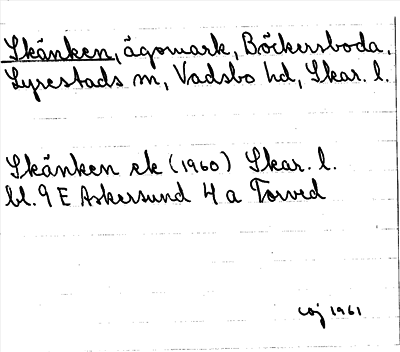 Skänken, ägomark, Böckersboda,
Lyrestads sn, Vadsbo hd, Skar. l.
Skänken ek (1960) Skar. l.
bl. 9 E Askersund 4 a Torved
1961